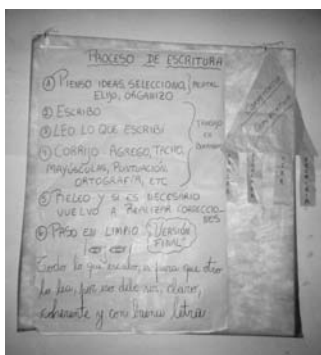 PROCESO DE ESCRITURA
① PIENSO IDEAS, SELECCIONO,
ELIJO, ORGANIZO
② ESCRIBO
③ LEO LO QUE ESCRIBÍ
④ CORRIJO AGREGO, TACHO,
MAYÚSCULAS, PUNTUACIÓN
ORTOGRAFÍA, ETC
TRABAJO
EN
⑤ RELEO Y SI ES NECESARIO
VUELVO A REALIZAR CORRECCIO-
NES
⑥ PASO EN LIMPIO "VERSIÓN
FINAL"
Todo lo que escribo, es para que otro
lo lea, por eso debe ser, claro,
coherente y con buena letra